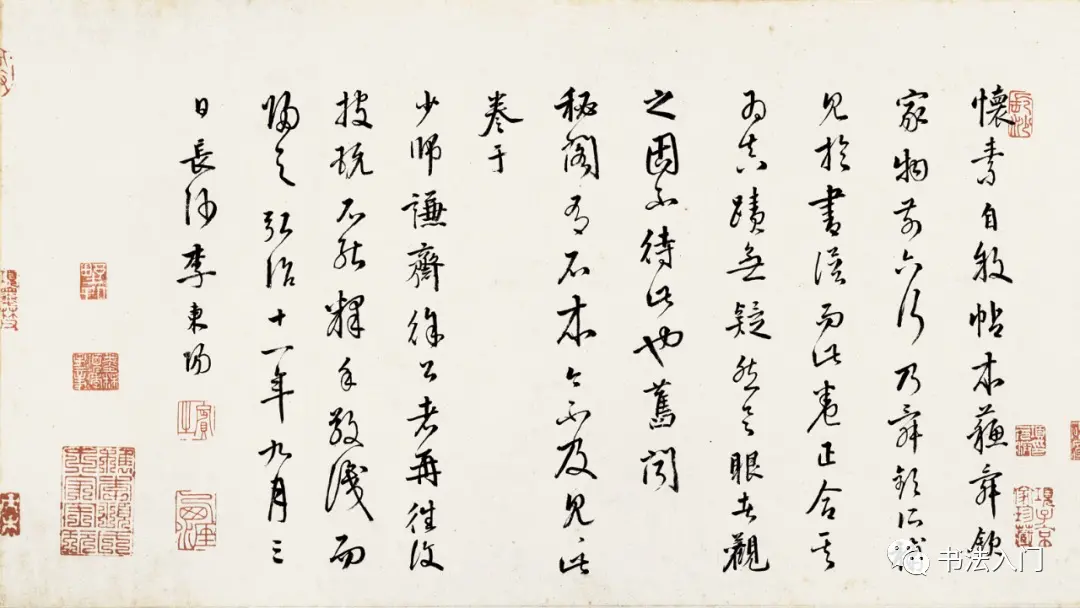 懷素自敘帖本蘇舜欽
家物前六行乃舜欽所補
見於書譜而此卷正合其
為真蹟無疑然具眼者觀
之固不待此也舊聞
秘閣有石本今不及見、此
卷于
少師謙齋徐公者再往復
披玩不能釋手敬識而
歸之弘治十一年九月三
日長沙李東陽
長沙
項子京
家珍藏
书法入门